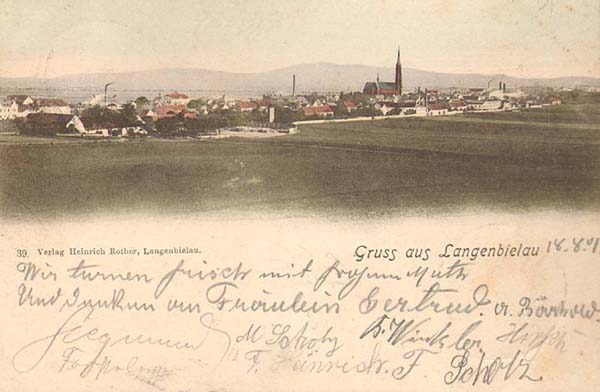 39. Verlag Heinrich Rother, Langenbielau.
Gruss aus Langenbielau 18.8.01
Wir turnen frisch mit frohem Muth
Und denken an Fräulein Gertrud. a.
Siegmund M Scholz F. Heinrich. Winkler F. Scholz.